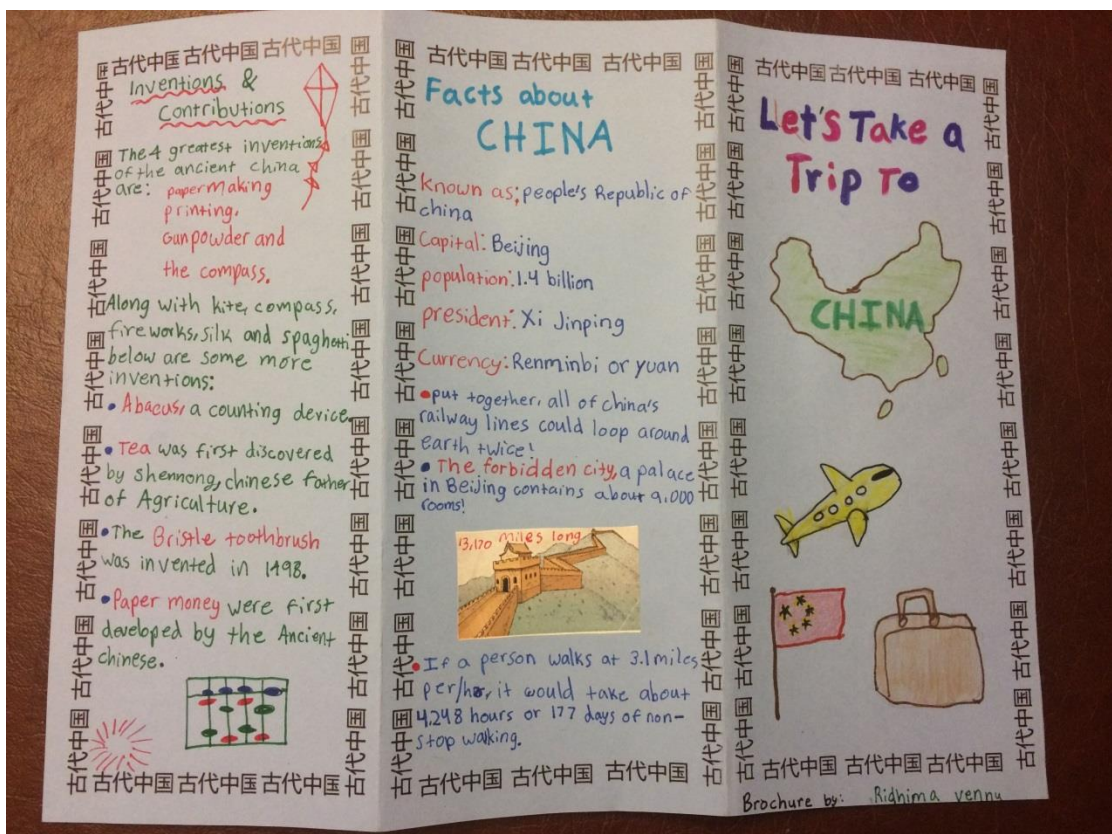 古代中国 古代中国 古代中国
Inventions &
Contributions
The 4 greatest inventions
of the ancient china
are: paper making
printing.
Gunpowder and
the compass.
Along with kite, compass,
fireworks, silk and spaghetti
below are some more
inventions:
• Abacus, a counting device.
• Tea was first discovered
by Shennong, chinese father
of Agriculture.
• The Bristle toothbrush
was invented in 1498.
• Paper money were first
developed by the Ancient
chinese.
古代中国 古代中国 古代中国
古代中国 古代中国 古代中国 古代中国 古代中国
古代中国 古代中国 古代中国 古代中国 古代中国
古代中国 古代中国 古代中国
Facts about
CHINA
Known as; people's Republic of
china
Capital: Beijing
population: 1.4 billion
president: Xi Jinping
Currency: Renminbi or yuan
• put together, all of china's
railway lines could loop around
earth twice!
• The forbidden city, a palace
in Beijing contains about 9,000
rooms!
13,170 miles long
• If a person walks at 3.1 miles
per/hr, it would take about
4,248 hours or 177 days of non-
stop walking.
古代中国 古代中国 古代中国
古代中国 古代中国 古代中国 古代中国 古代中国
古代中国 古代中国 古代中国 古代中国 古代中国
古代中国 古代中国 古代中国
Let's Take a
Trip To
CHINA
古代中国 古代中国 古代中国
古代中国 古代中国 古代中国 古代中国 古代中国
古代中国 古代中国 古代中国 古代中国 古代中国
Brochure by: Ridhima vennu